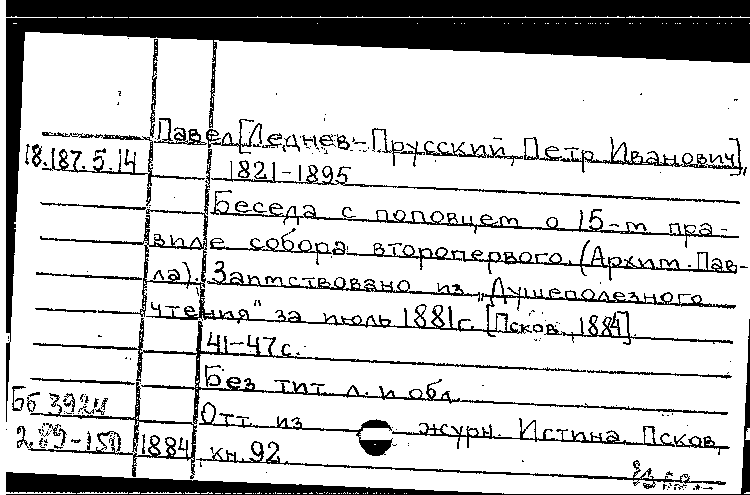 Павел [Леднев-Прусский, Петр Иванович],
18.187.5.14
1821-1895
Беседа с поповцем о 15-м пра-
виле собора второпервого. (Архим. Пав-
ла). Заимствовано из „Душеполезного
чтения" за июль 1881г. [Псков, 1884]
41-47с.
Без тит. л. и обл.
Бб 3924
Отт. из журн. Истина. Псков,
2.89-150 1884, кн. 92.